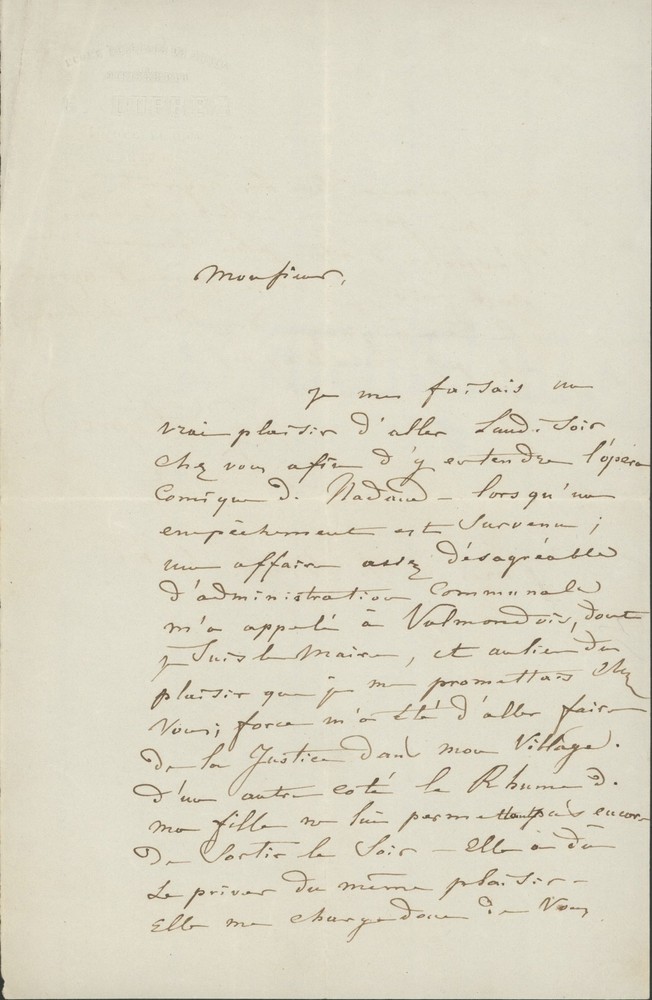 Monsieur,
je me faisais un
vrai plaisir d'aller Lundi Soir
chez vous afin d'y entendre l'opéra
Comique de Nadaud – lorsqu'un
empêchement est Survenu ;
une affaire assez désagréable
d'administration Communale
m'a appelé à Valmondois, dont
je Suis le Maire, et au lieu du
plaisir que je me promettais chez
Vous ; force m'a été d'aller faire
De la Justice dans mon Village.
D'un autre coté le Rhume de
ma fille ne lui permettant pas encore
De Sortir le Soir – Elle a dû
se priver du même plaisir –
Elle me charge donc de Vous